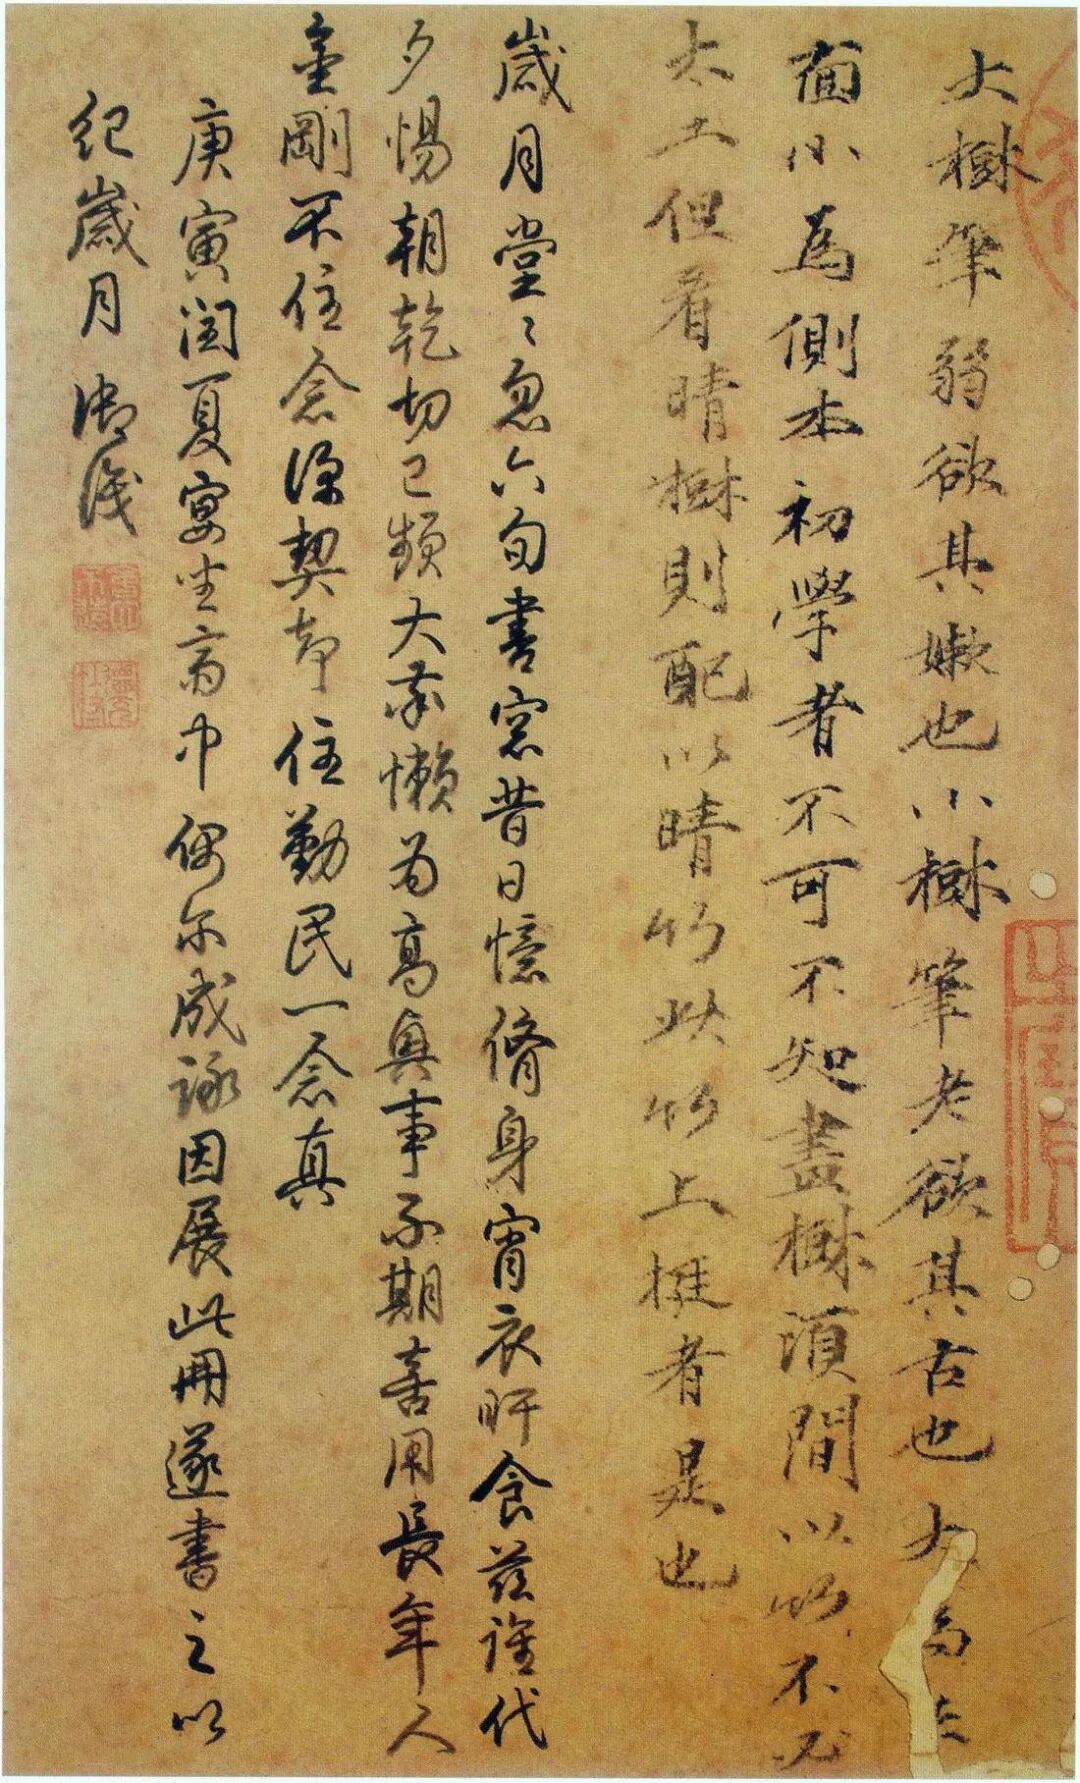 大樹筆弱欲其嫩也小樹筆老欲其古也大為
面小為側本初學者不可不知畫樹須間以竹不必
太工但看晴樹則配以晴竹此竹上挺者是也
歲月堂〻忽六旬書窓昔日憶脩身宵衣旰食茲誰代
夕惕朝乾切己頻大衍懶為高與事不期善用長年人
金剛不住念深契却住勤民一念真
庚寅閏夏宴坐齋中偶尔成詠因展此冊遂書之以
紀歲月御識